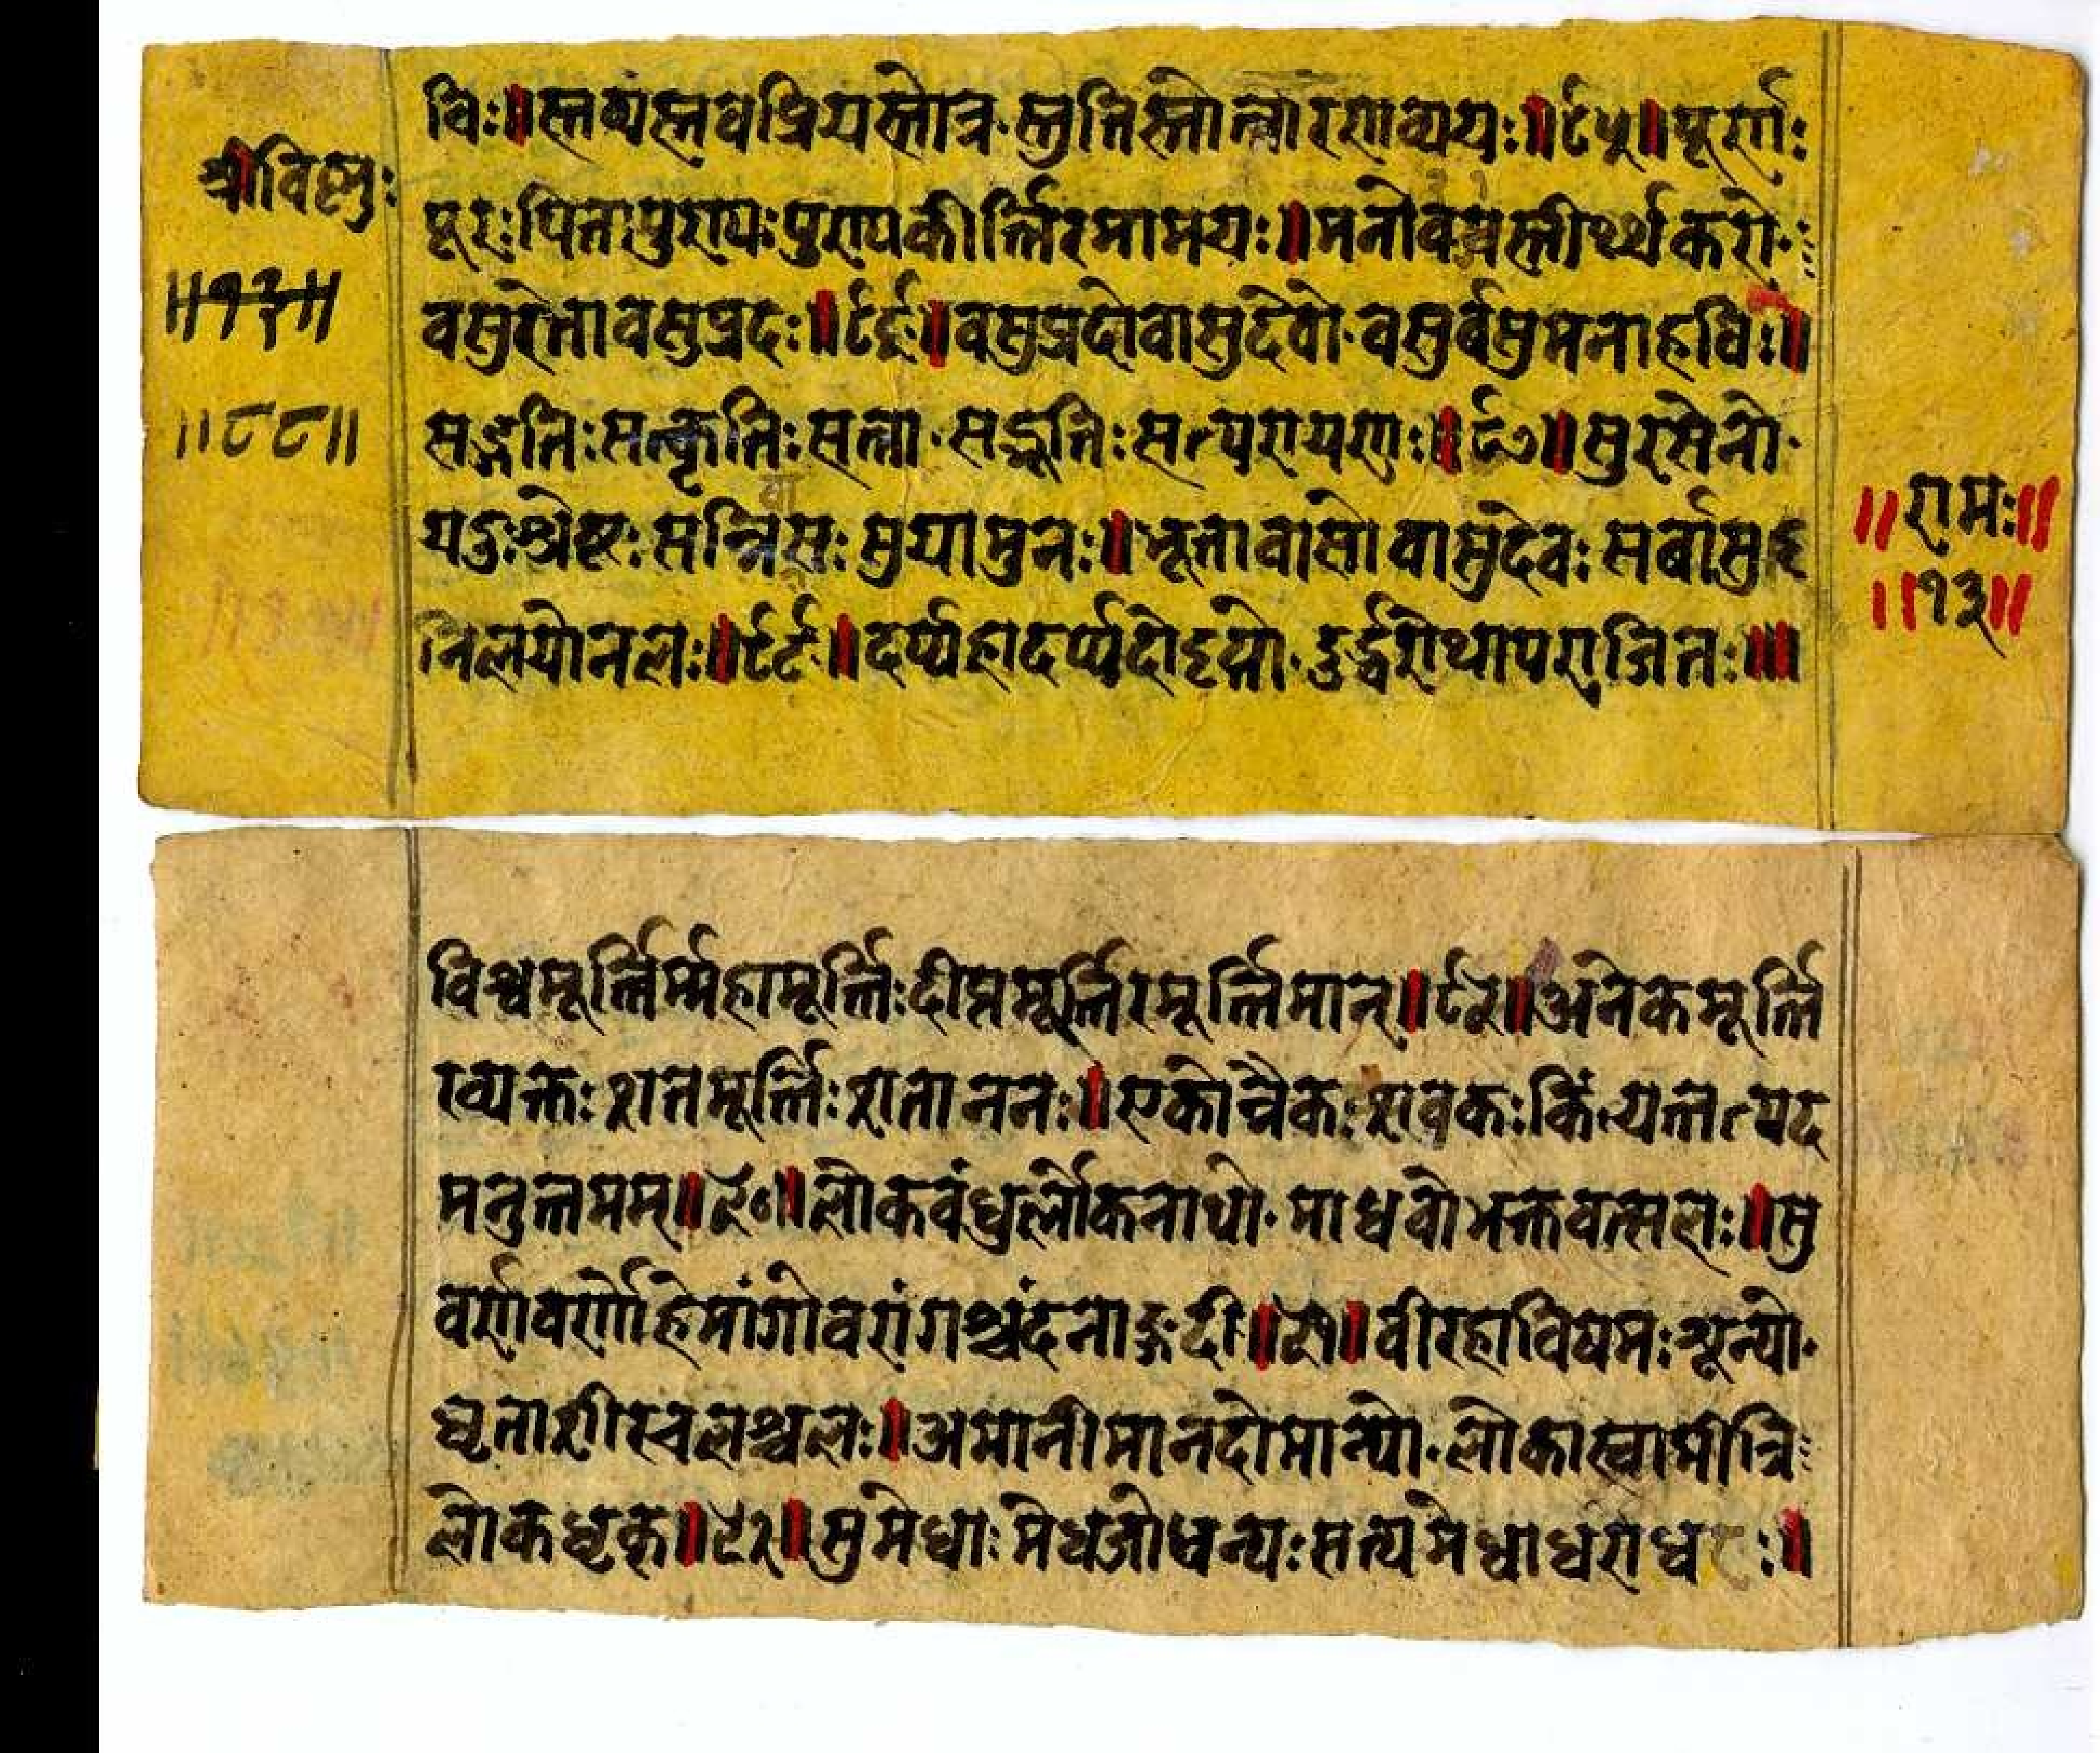 श्रीविष्णुः
॥१३॥
॥८८॥
विः॥स्तव्यस्तवप्रियस्तोत्र·स्तुतिस्तोत्नारणाव्ययः॥८५॥पूर्णः
पूरःपितापुराण्यःपुराण्यकीर्त्तिरमामयः॥मनोवस्तीर्थ्थकरो·
वसुरेतावसुप्रदः॥८६॥वसुप्रदोवासुदेवो·वसुर्वसुमनाहविः॥
सङ्गतिःसत्कृतिःसत्ता·सद्भूतिःसत्परायणः॥८७॥सुरसेनो·
यदुःश्रेष्टःसन्निसःसुयामुनः॥भूतावासोवासुदेवःसर्वासु
निलयोनलः॥८८॥दर्प्पहादर्प्पदोदृप्तो·दुर्द्धरोथापराजितः॥
॥रामः॥
॥१३॥
विश्वमूर्त्तिर्म्महामूर्त्तिःदीप्तमूर्त्तिरमूर्त्तिमान्॥८९॥अनेकमूर्त्ति
रव्यक्तःशतमूर्त्तिःशताननः॥एकोन्नैकःशवकःकिंत्यत्तत्पद
मनुत्तमम्॥९०॥लोकवंधुर्लोकनाथो·माधवोभक्तवत्सलः॥सु
वर्णवर्णोहेमांगोवरांगश्चंदनाङ्गदी॥९१॥वीरहाविषमःश्रून्यो·
घृताशीरचलश्चलः॥अमानीमानदोमान्यो·लोकास्वामीत्रि
लोकधृक्॥९२॥सुमेधाःमेधजोधन्यःसत्यमेधाधराधरः॥